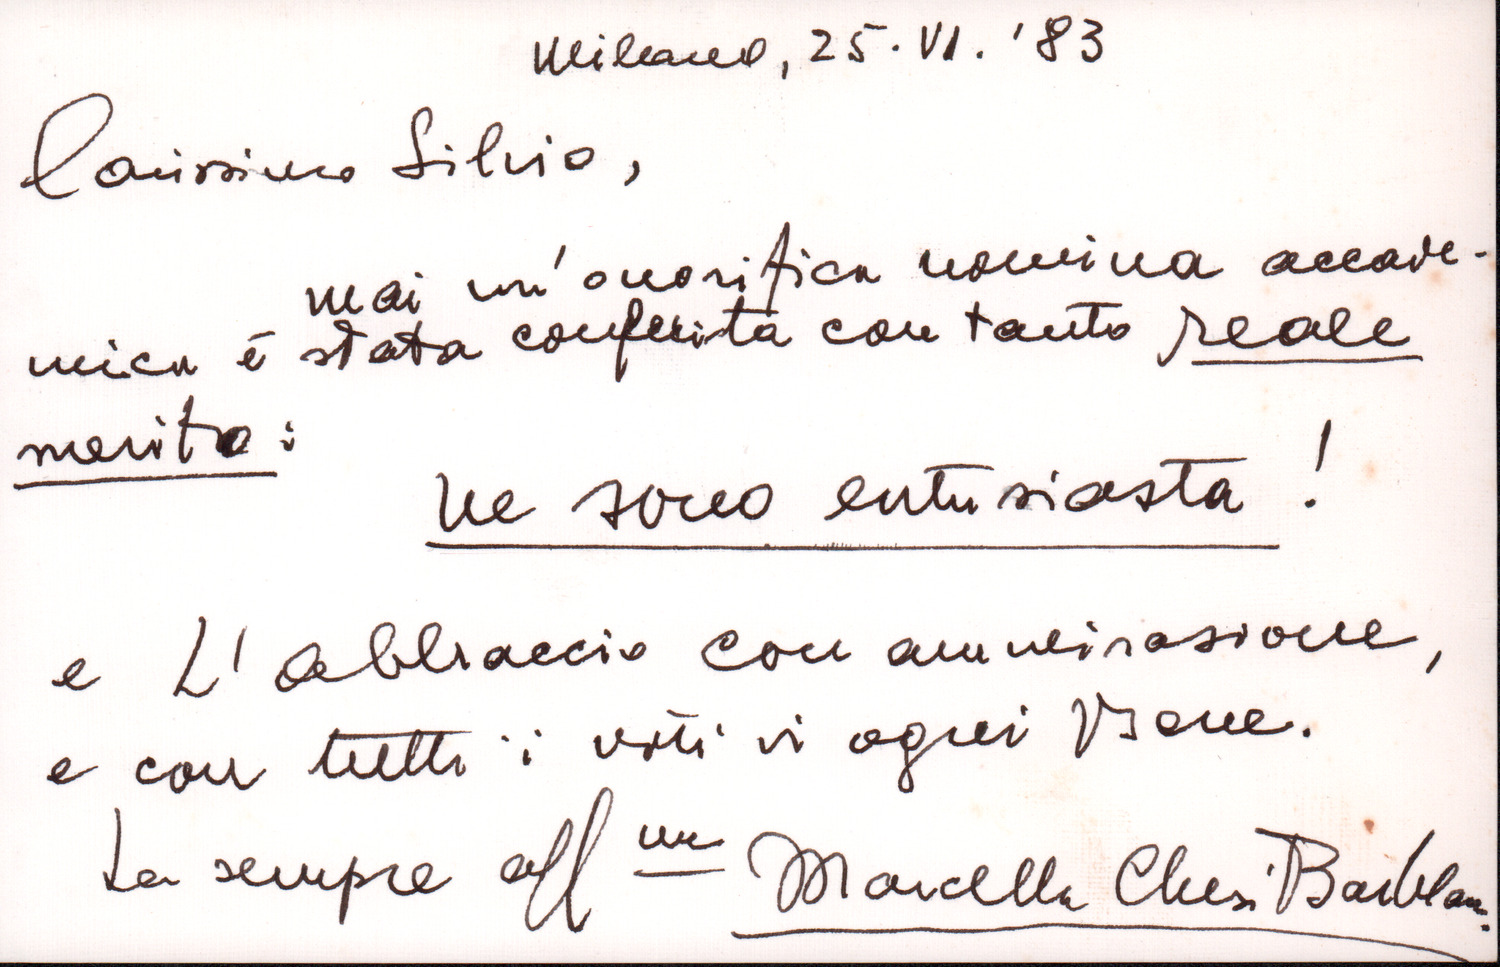 Milano, 25.VI.'83
Carissimo Silvio,
mai un'onorifica nomina accade-
mica è stata conferita con tanto reale
merito:
ne sono entusiasta!
e L'abbraccio con ammirazione,
e con tutti i voti di ogni Bene.
La sempre aff.ma Marcella Chesi Barblan.